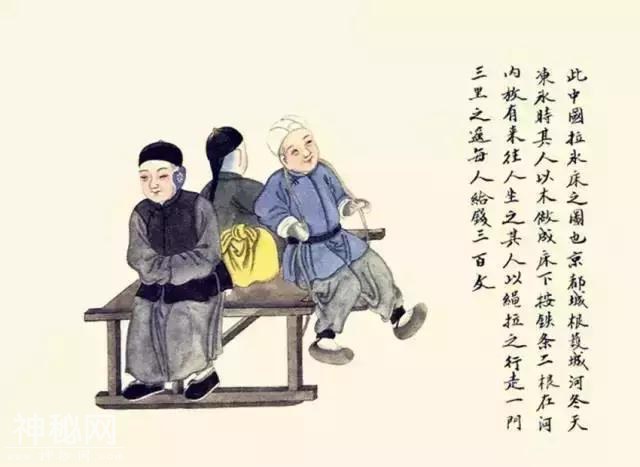 此中國拉氷床之圖也京都城根葭城河冬天
凍氷時其人以木做成床下按鉄条二根在河
内放有来往人坐之其人以繩拉之行走一門
三里之遥每人給錢三百文
神秘网